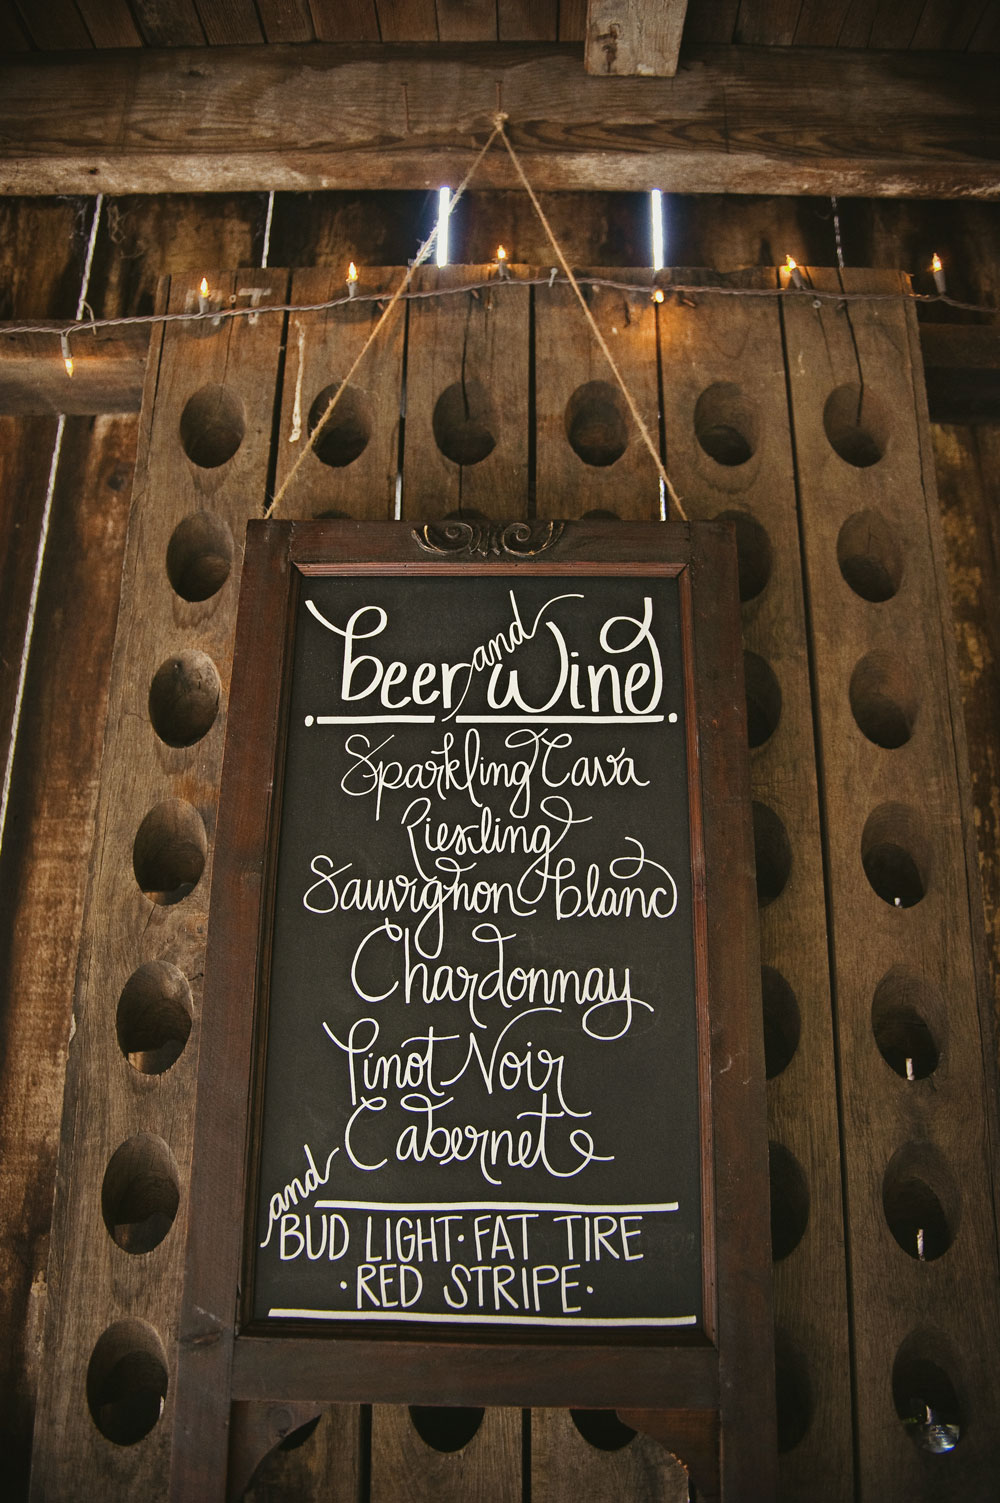 Beer and Wine
Sparkling Cava
Riesling
Sauvignon blanc
Chardonnay
Pinot Noir
Cabernet
and
BUD LIGHT · FAT TIRE
· RED STRIPE ·